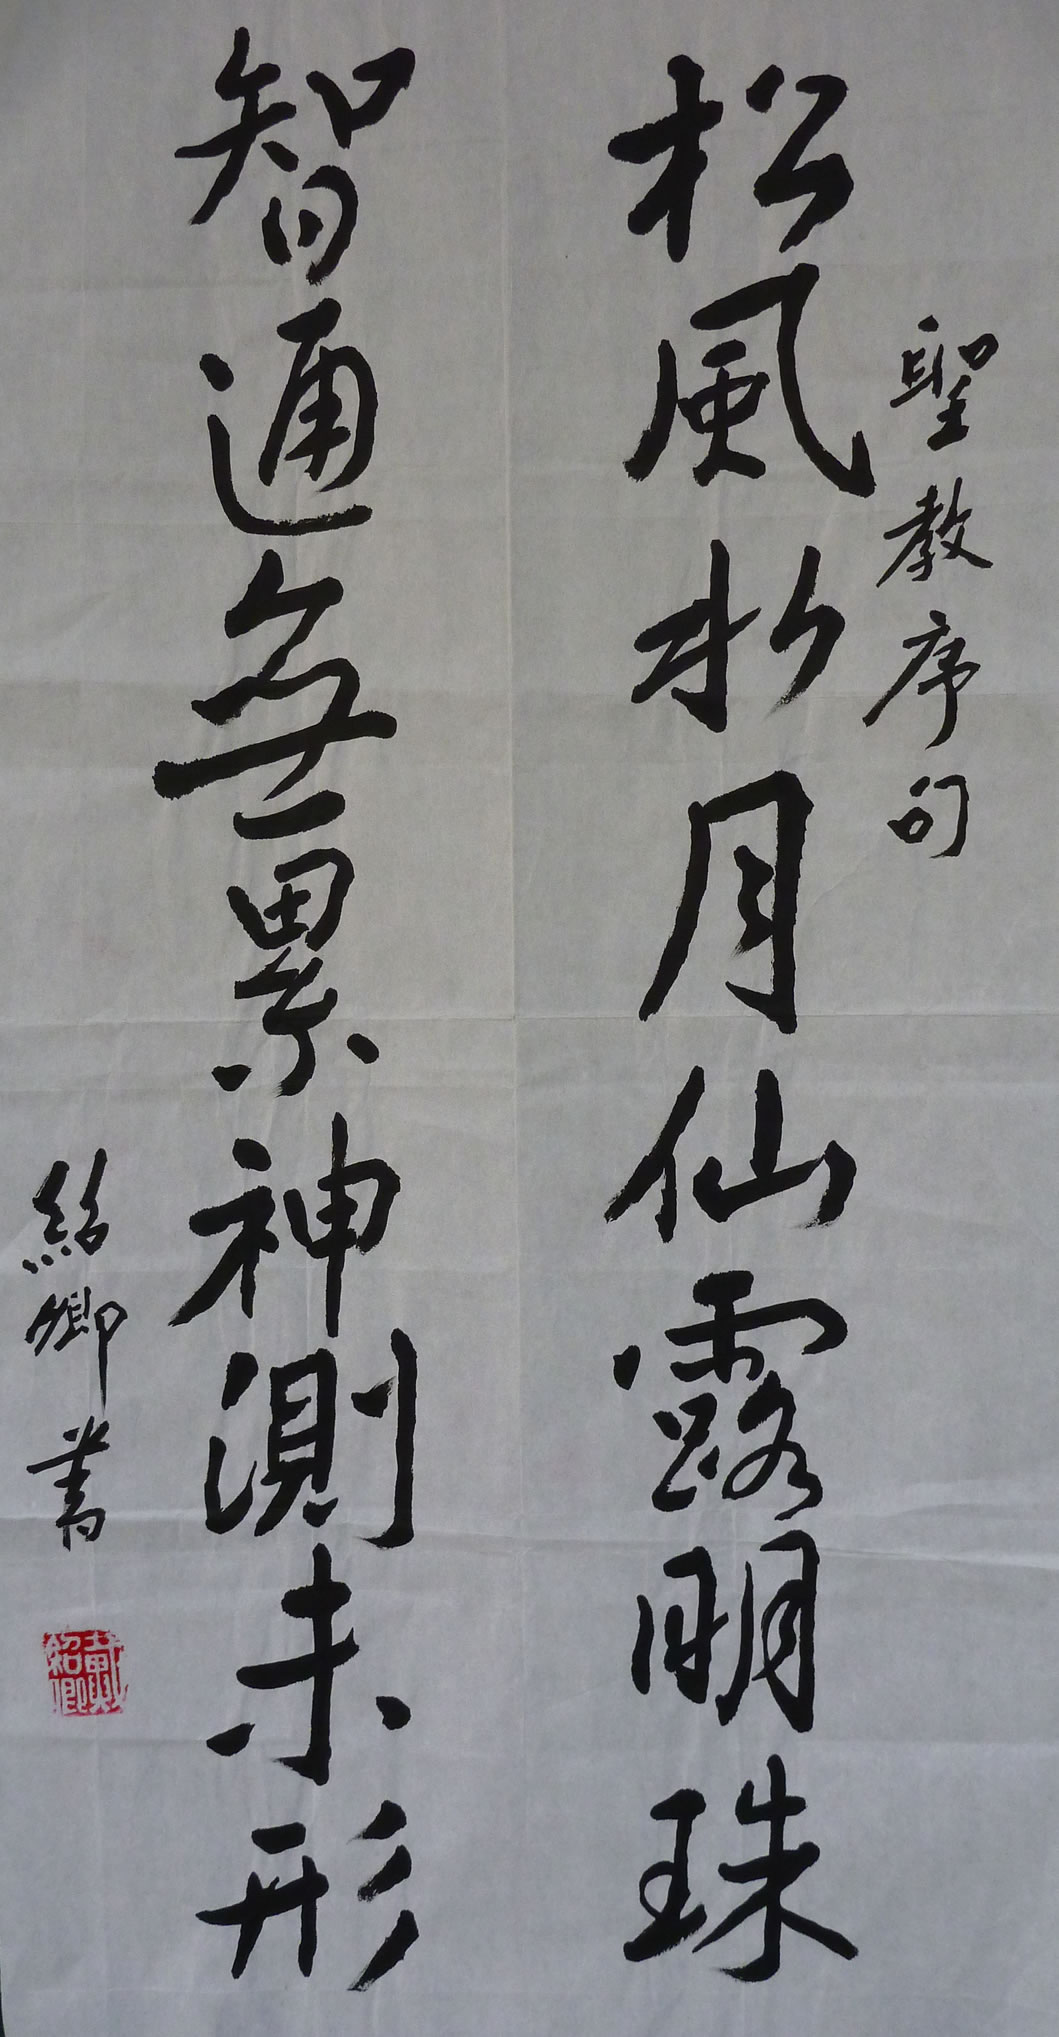 聖教序句
松風水月仙露明珠
智通無累神測未形
紹卿書
戴紹卿